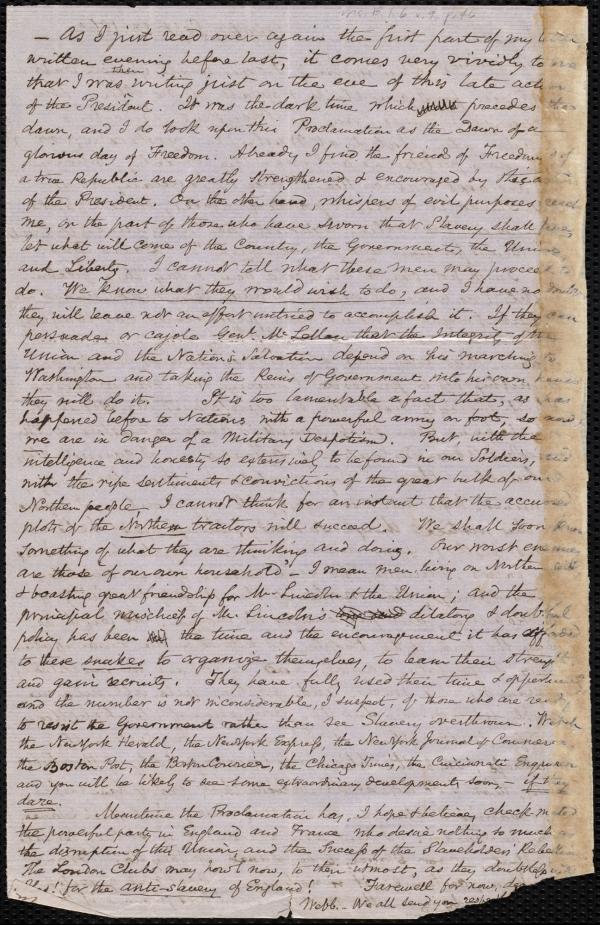 — As I just read over again the first part of my letter
written evening before last, it comes very vividly to me
that I was then writing just on the eve of this late action
of the President. It was the dark time which precedes the
dawn, and I do look upon this Proclamation as the Dawn of a
glorious day of Freedom. Already I find the friends of Freedom & of
a true Republic are greatly strengthened & encouraged by this
of the President. On the other hand, whispers of evil purposes
me, on the part of those who have sworn that Slavery shall
let what will come of the Country, the Government, the Union
and Liberty. I cannot tell what these men may proceed to
do. We know what they would wish to do, and I have no doubt
they will leave not an effort untried to accomplish it. If they can
persuade or cajole Genl. McLellan that the Integrity of the
Union and the Nation's Salvation depend on his marching to
Washington and taking the Reins of Government into his own hands
they will do it. It is too lamentable a fact that, as has
happened before to Nations with a powerful army on foot, so now
we are in danger of a Military Despotism. But, with the
intelligence and honesty so extensively to be found in our Soldiers, and
with the ripe sentiments & convictions of the great bulk of our
Northern people, I cannot think for an instant that the accursed
plots of the Northern traitors will succeed. We shall soon know
something of what they are thinking and doing. Our worst enemies
are those of our own household – I mean men living on Northern soil
& boasting great friendship for Mr Lincoln & the Union; and the
principal mischief of Mr. Lincoln's dilatory & doubtful
policy has been the time and the encouragement it has afforded
to these snakes to organize themselves, to learn their strength
and gain recruits. They have fully used their time & opportunity
and the number is not inconsiderable, I suspect, of those who are ready
to resist the Government rather than see Slavery overthrown. Watch
the New York Herald, the New York Express, the New York Journal of Commerce,
the Boston Post, the Boston Courier, the Chicago Times, the Cincinnati Enquirer
and you will be likely to see some extraordinary developments soon, – if they
dare.
Meantime the Proclamation has, I hope & believe, check mated
the powerful party in England and France who desire nothing so much as
the disruption of this Union, and the Success of the Slaveholders' Rebellion
The London Clubs may howl now, to their utmost, as they doubtless
for the anti-slavery of England! Farewell for now, dear
Webb. – We all send you